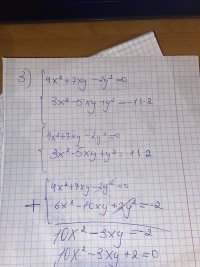 3) 4x²+7xy-2y²=0
3x²-5xy+y²=-1|·2
4x²+7xy-2y²=0
3x²-5xy+y²=-1|·2
4x²+7xy-2y²=0
+ 6x²-10xy+2y²=-2
10x²-3xy=-2
10x²-3xy+2=0